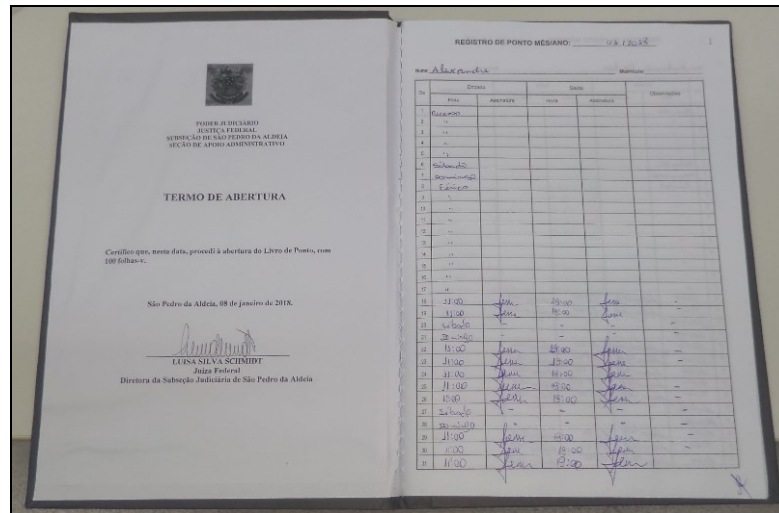 PODER JUDICIÁRIO
JUSTIÇA FEDERAL
SUBSEÇÃO DE SÃO PEDRO DA ALDEIA
SEÇÃO DE APOIO ADMINISTRATIVO
TERMO DE ABERTURA
Certifico que, nesta data, procedi à abertura do Livro de Ponto, com
100 folhas-v.
São Pedro da Aldeia, 08 de janeiro de 2018.
LUISA SILVA SCHMIDT
Juíza Federal
Diretora da Subseção Judiciária de São Pedro da Aldeia
REGISTRO DE PONTO MÊS/ANO: 01/2018
Nome Alexandre Matrícula
Dia Entrada Saída Observações
Hora Assinatura Hora Assinatura
1 Recesso
2 "
3 "
4 "
5 "
6 Sábado
7 Domingo
8 Férias
9 "
10 "
11 "
12 "
13 "
14 "
15 "
16 "
17 "
18 11:00 19:00 -
19 11:00 19:00 -
20 Sábado - - - -
21 Domingo - - - -
22 11:00 19:00 -
23 11:00 19:00 -
24 11:00 19:00 -
25 11:00 19:00 -
26 11:00 19:00 -
27 Sábado - - - -
28 Domingo - - - -
29 11:00 19:00 -
30 11:00 19:00 -
31 11:00 19:00 -